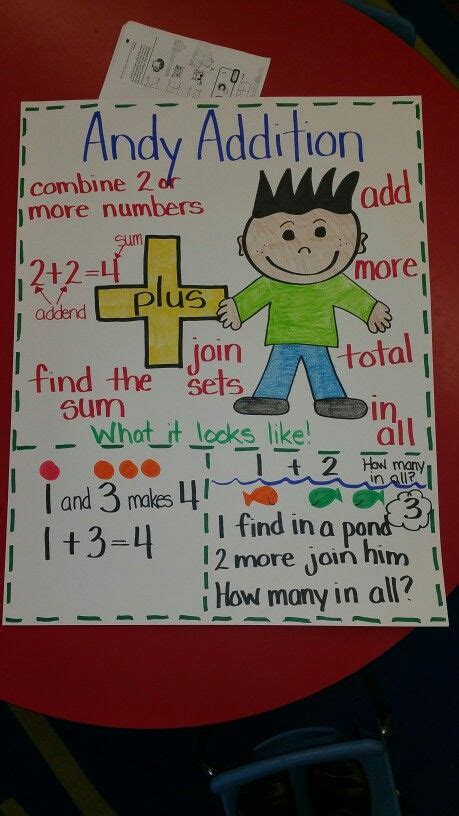 Andy Addition
combine 2 or
more numbers
add
sum
2+2=4
addend
plus
more
join
sets
total
find the
sum
in
all
What it looks like!
1 and 3 makes 4
1+3=4
1 + 2
How many
in all?
3
1 find in a pond
2 more join him
How many in all?